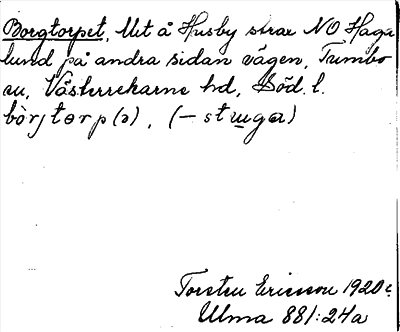 Borgtorpet, Utt å Husby strax NO Haga
lund på andra sidan vägen, Tumbo
sn, Västerrekarne hd, Söd. l.
bòrjtorp(ə), (– stugɑ)
Torsten Ericsson 1920c.
Ulma 881:24a